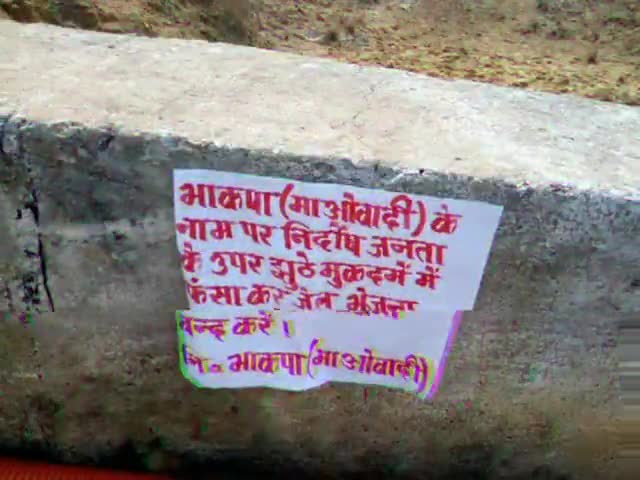 भाकपा (माओवादी) के
नाम पर निर्दोष जनता
के उपर झुठे मुकदमें में
फंसा कर जेल भेजना
बन्द करें ।
नि॰ भाकपा (माओवादी)